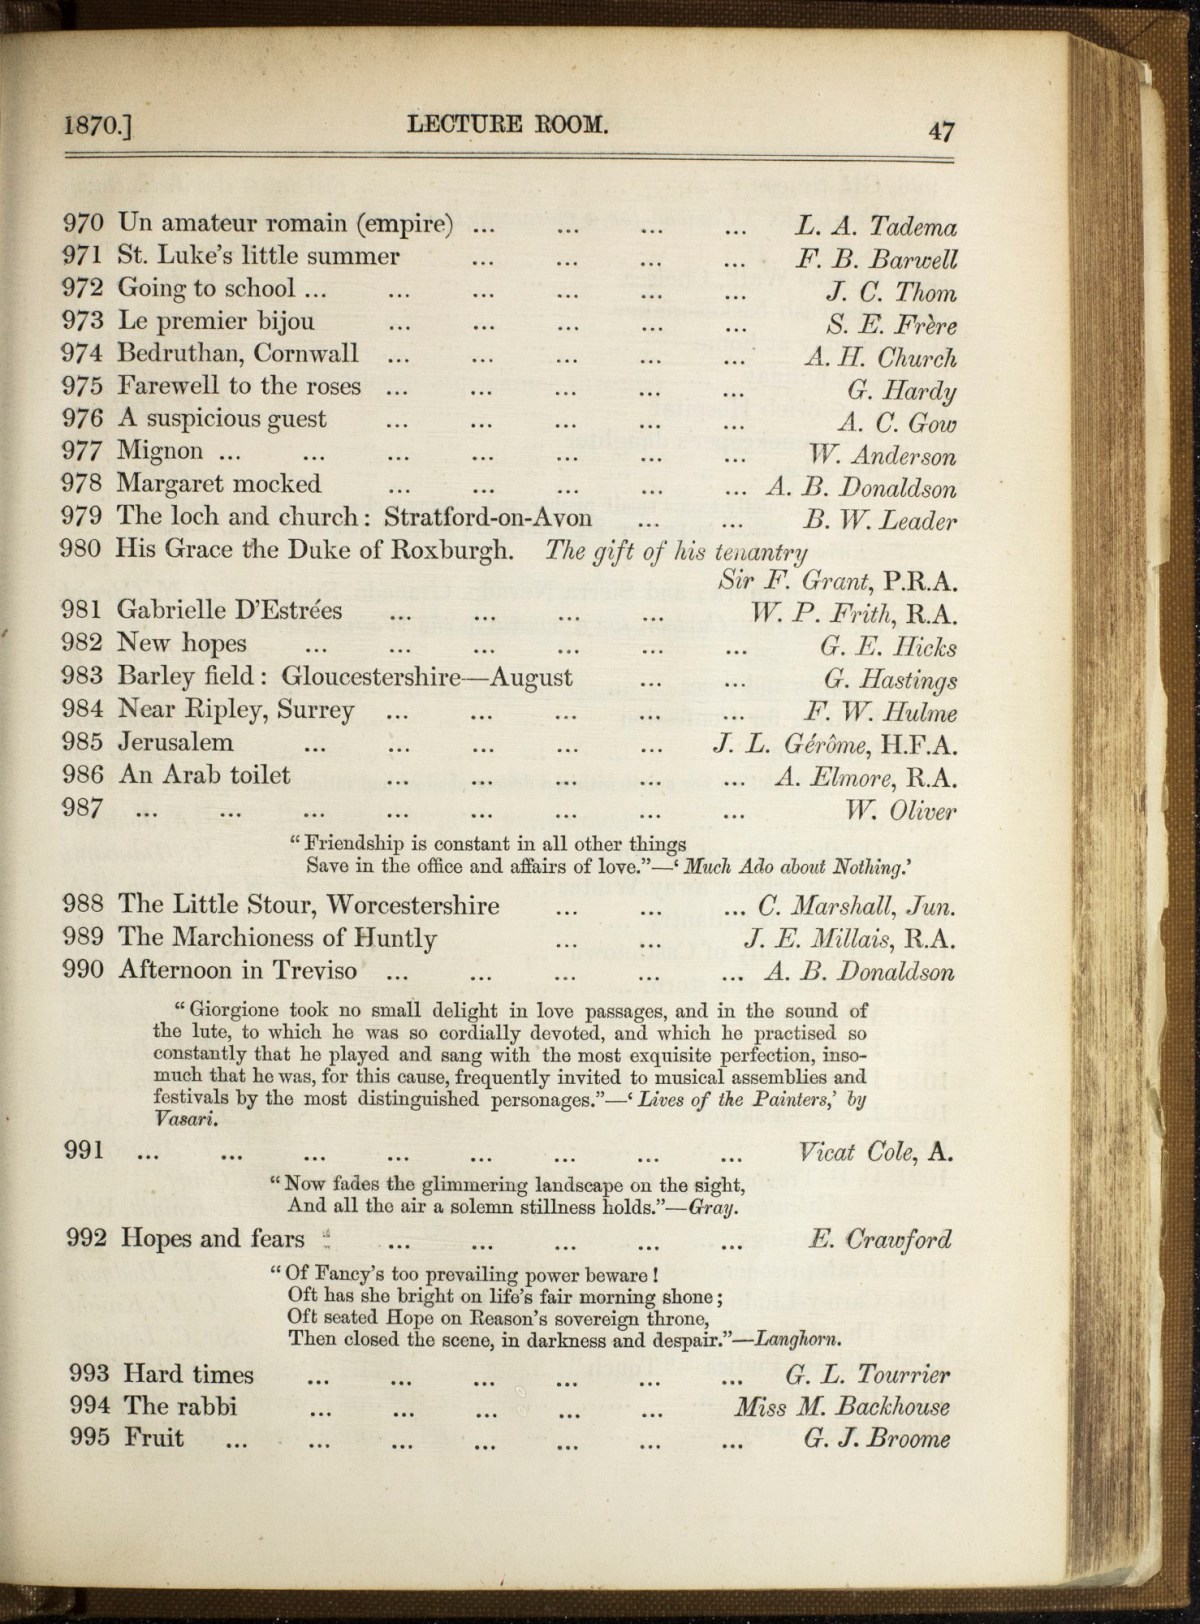 1870.] LECTURE ROOM. 47
970 Un amateur romain (empire) ... ... ... ... L. A. Tadema
971 St. Luke's little summer ... ... ... ... F. B. Barwell
972 Going to school ... ... ... ... ... ... J. C. Thom
973 Le premier bijou ... ... ... ... ... S. E. Frère
974 Bedruthan, Cornwall ... ... ... ... ... A. H. Church
975 Farewell to the roses ... ... ... ... ... G. Hardy
976 A suspicious guest ... ... ... ... ... A. C. Gow
977 Mignon ... ... ... ... ... ... ... W. Anderson
978 Margaret mocked ... ... ... ... ... A. B. Donaldson
979 The loch and church: Stratford-on-Avon ... ... B. W. Leader
980 His Grace the Duke of Roxburgh. The gift of his tenantry
Sir F. Grant, P.R.A.
981 Gabrielle D'Estrées ... ... ... ... W. P. Frith, R.A.
982 New hopes ... ... ... ... ... ... G. E. Hicks
983 Barley field: Gloucestershire—August ... ... G. Hastings
984 Near Ripley, Surrey ... ... ... ... ... F. W. Hulme
985 Jerusalem ... ... ... ... ... J. L. Gérôme, H.F.A.
986 An Arab toilet ... ... ... ... ... A. Elmore, R.A.
987 ... ... ... ... ... ... ... ... W. Oliver
“Friendship is constant in all other things
Save in the office and affairs of love.”—‘Much Ado about Nothing.’
988 The Little Stour, Worcestershire ... ... ... C. Marshall, Jun.
989 The Marchioness of Huntly ... ... J. E. Millais, R.A.
990 Afternoon in Treviso ... ... ... ... ... A. B. Donaldson
“Giorgione took no small delight in love passages, and in the sound of
the lute, to which he was so cordially devoted, and which he practised so
constantly that he played and sang with the most exquisite perfection, inso-
much that he was, for this cause, frequently invited to musical assemblies and
festivals by the most distinguished personages.”—‘Lives of the Painters,’ by
Vasari.
991 ... ... ... ... ... ... ... ... Vicat Cole, A.
“Now fades the glimmering landscape on the sight,
And all the air a solemn stillness holds.”—Gray.
992 Hopes and fears ... ... ... ... ... E. Crawford
“Of Fancy's too prevailing power beware!
Oft has she bright on life's fair morning shone;
Oft seated Hope on Reason's sovereign throne,
Then closed the scene, in darkness and despair.”—Langhorn.
993 Hard times ... ... ... ... ... ... G. L. Tourrier
994 The rabbi ... ... ... ... ... Miss M. Backhouse
995 Fruit ... ... ... ... ... ... ... G. J. Broome